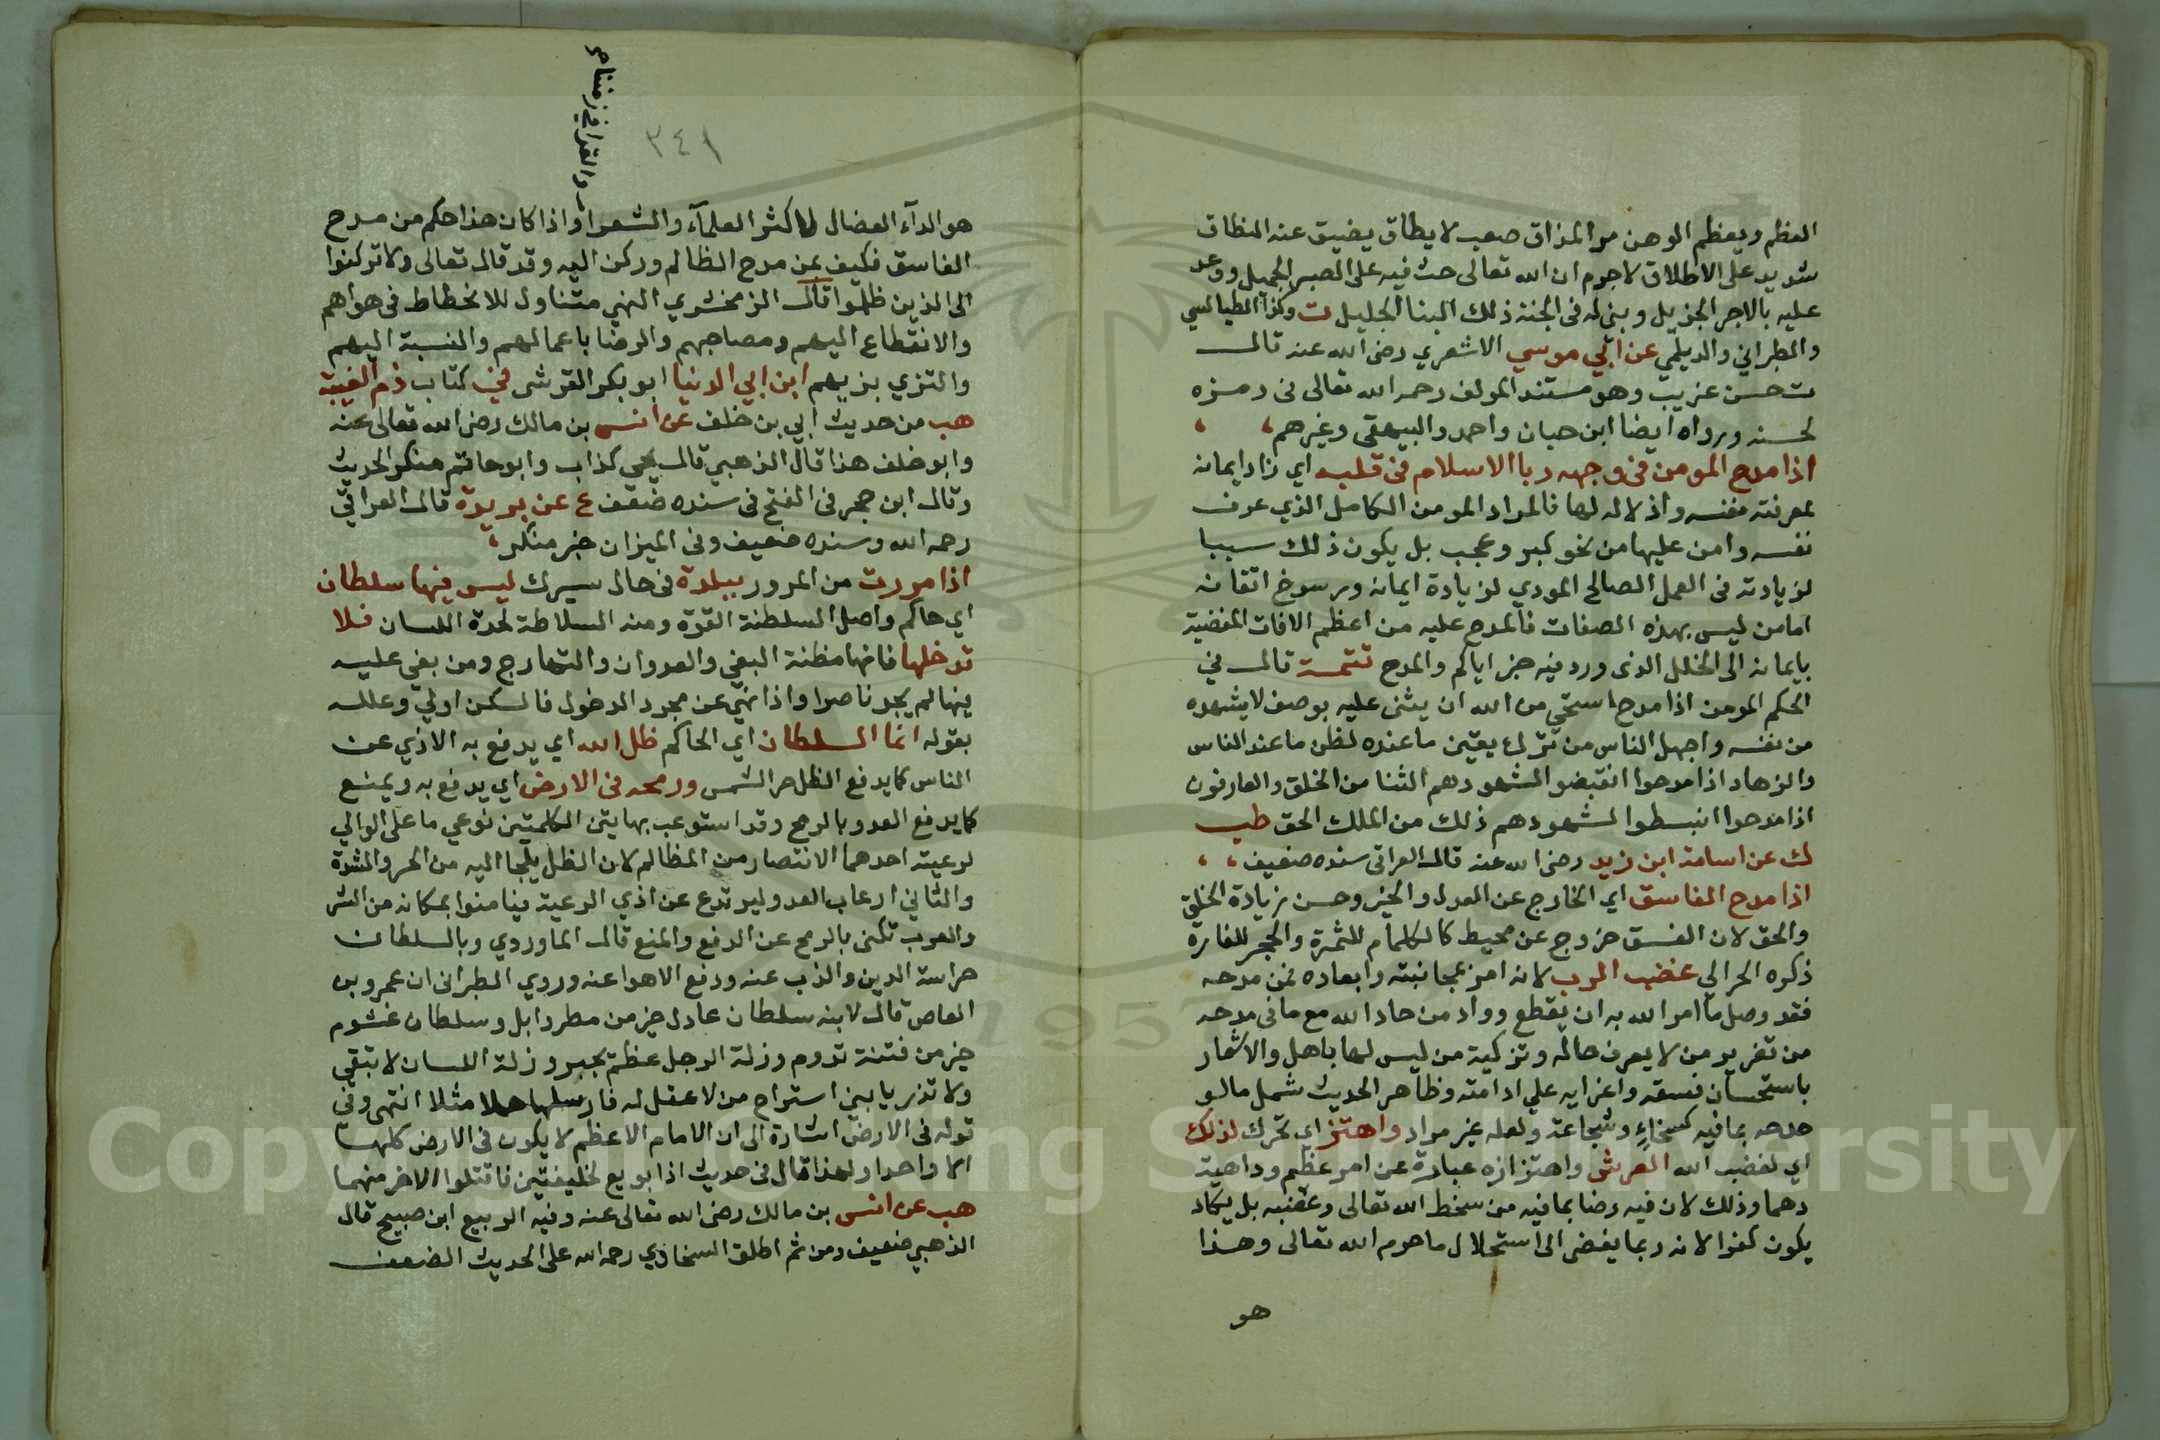 العظم ويعظم الوهن مر المذاق صعب لا يطاق يضيق عنه النطاق
شديد على الاطلاق لا جرم ان الله تعالى حث فيه على الصبر الجميل ووعد
عليه بالاجر الجزيل وبنى له في الجنة ذلك البنا الجليل ت وكذا الطيالسي
والطبراني والديلمي عن ابي موسي الاشعري رضى الله عنه قال
ت حسن غريب وهو مستند المولف رحمه الله تعالى فى رمزه
لحسنه ورواه ايضا ابن حبان واحمد والبيهقى وغيرهم
اذا مدح المومن فى وجهه ربا الاسلام فى قلبه اي زاد ايمانه
لمعرفته نفسه واذلاله لها فالمراد المومن الكامل الذي عرف
نفسه وامن عليها من نحو كبر وعجب بل يكون ذلك سببا
لزيادته فى العمل الصالح المودي لزيادة ايمانه ورسوخ اتقانه
امامن ليس بهذه الصفات فالمدح عليه من اعظم الافات المفضية
بايمانه الى الخلل الذى ورد فيه خبر اياكم والمدح تتمة قال في
الحكم المومن اذا مدح استحى من الله ان يثنى عليه بوصف لا يشهده
من نفسه واجهل الناس من ترك يقين ما عنده لظن ما عند الناس
والزهاد اذا مدحوا انقبضو الشهودهم الثنا من الخلق والعارفون
اذا مدحوا انبسطوا لشهودهم ذلك من الملك الحق طب
ك عن اسامة ابن زيد رضى الله عنه قال العراقى سنده ضعيف
اذا مدح الفاسق اي الخارج عن العدل والخير وحسن زيادة الخلق
والحق لان الفسق خروج عن محيط كالكمام للثمرة والحجر للفارة
ذكره الحرالي غضب الرب لانه امر بمجانبته وابعاده فمن مدحه
فقد وصل ما امر الله به ان يقطع وواد من حاد الله مع ما فى مدحه
من تغرير من لا يعرف حاله وتزكية من ليس لها باهل والاشعار
باستحسان فسقه واغرايه علي ادامته وظاهر الحديث شمل مالو
مدحه بما فيه كسخاءٍ وشجاعة ولعله غير مراد واهتز اي تحرك لذلك
اي لغضب الله العرش واهتزازه عبارة عن امر عظم وداهية
دهما وذلك لان فيه رضا بما فيه من سخط الله تعالى وغضبه بل يكاد
يكون كفرا لانه ربما يفضى الى استحلال ما حرم الله تعالى وهذا
هو
٢٤١
والقرا في زمننا صح
هو الدآء العضال لاكثر العلمآء والشعرا واذا كان هذا حكم من مدح
الفاسق فكيف بمن مدح الظالم وركن اليه وقد قال تعالى ولا تركنوا
الى الذين ظلموا قال الزمخشري النهي متناول للانحطاط فى هواهم
والانقطاع اليهم ومصاحبهم والرضا باعمالهم والنسبة اليهم
والتزي بزيهم ابن ابي الدنيا ابو بكر القرشى في كتاب ذم الغيبة
هب من حديث ابي بن خلف عن انس بن مالك رضى الله تعالى عنه
وابو خلف هذا قال الذهبي قال يحي كذاب وابو حاتم منكر الحديث
وقال ابن حجر فى الفتح فى سنده ضعف ع عن بريدة قال العراقي
رحمه الله وسنده ضعيف وفى الميزان خبر منكر
اذا مررت من المرور ببلدة فى حال سيرك ليس فيها سلطان
اي حاكم واصل السلطنة القوة ومنه السلاطة لحدة اللسان فلا
تدخلها فانها مظنة البغي والعدوان والتهارج ومن بغي عليه
فيها لم يجد ناصرا واذا نهي عن مجرد الدخول فالسكن اولي وعلله
بقوله انما السلطان اي الحاكم ظل الله اي يدفع به الاذي عن
الناس كما يدفع الظل حر الشمس ورمحه فى الارض اي يدفع به ويمنع
كما يدفع العدو بالرمح وقد استوعب بهايتن الكلمتين نوعي ما على الوالي
لرعيته احدهما الانتصار من الظالم لان الظل يلجا اليه من الحر والشدة
والثاني ارعاب العدو ليرتدع عن اذي الرعية فيامنوا بمكانه من الشر
والعرب تكنى بالرمح عن الدفع والمنع قال الماوردي وبالسلطان
حراسة الدين والذب عنه ودفع الاهوا عنه وروي الطبرانى ان عمرو بن
العاص قال لابنه سلطان عادل خير من مطر وابل وسلطان غشوم
خير من فتنة تدوم وزلة الرجل عظم يجبر وزلة اللسان لا تبقي
ولا تذر يا بني استراح من لا عقل له فارسلها مثلا انتهى وفى
قوله فى الارض اشارة الى ان الامام الاعظم لا يكون فى الارض كلها
الا واحدا ولهذا قال فى حديث اذا بويع لخليفتين فاقتلوا الاخر منهما
هب عن انس بن مالك رضى الله تعالى عنه وفيه الربيع ابن صبيح قال
الذهبي ضعيف ومن ثم اطلق السخاوي رحمه الله على الحديث الضعف
Copyright © King Saud University
1957